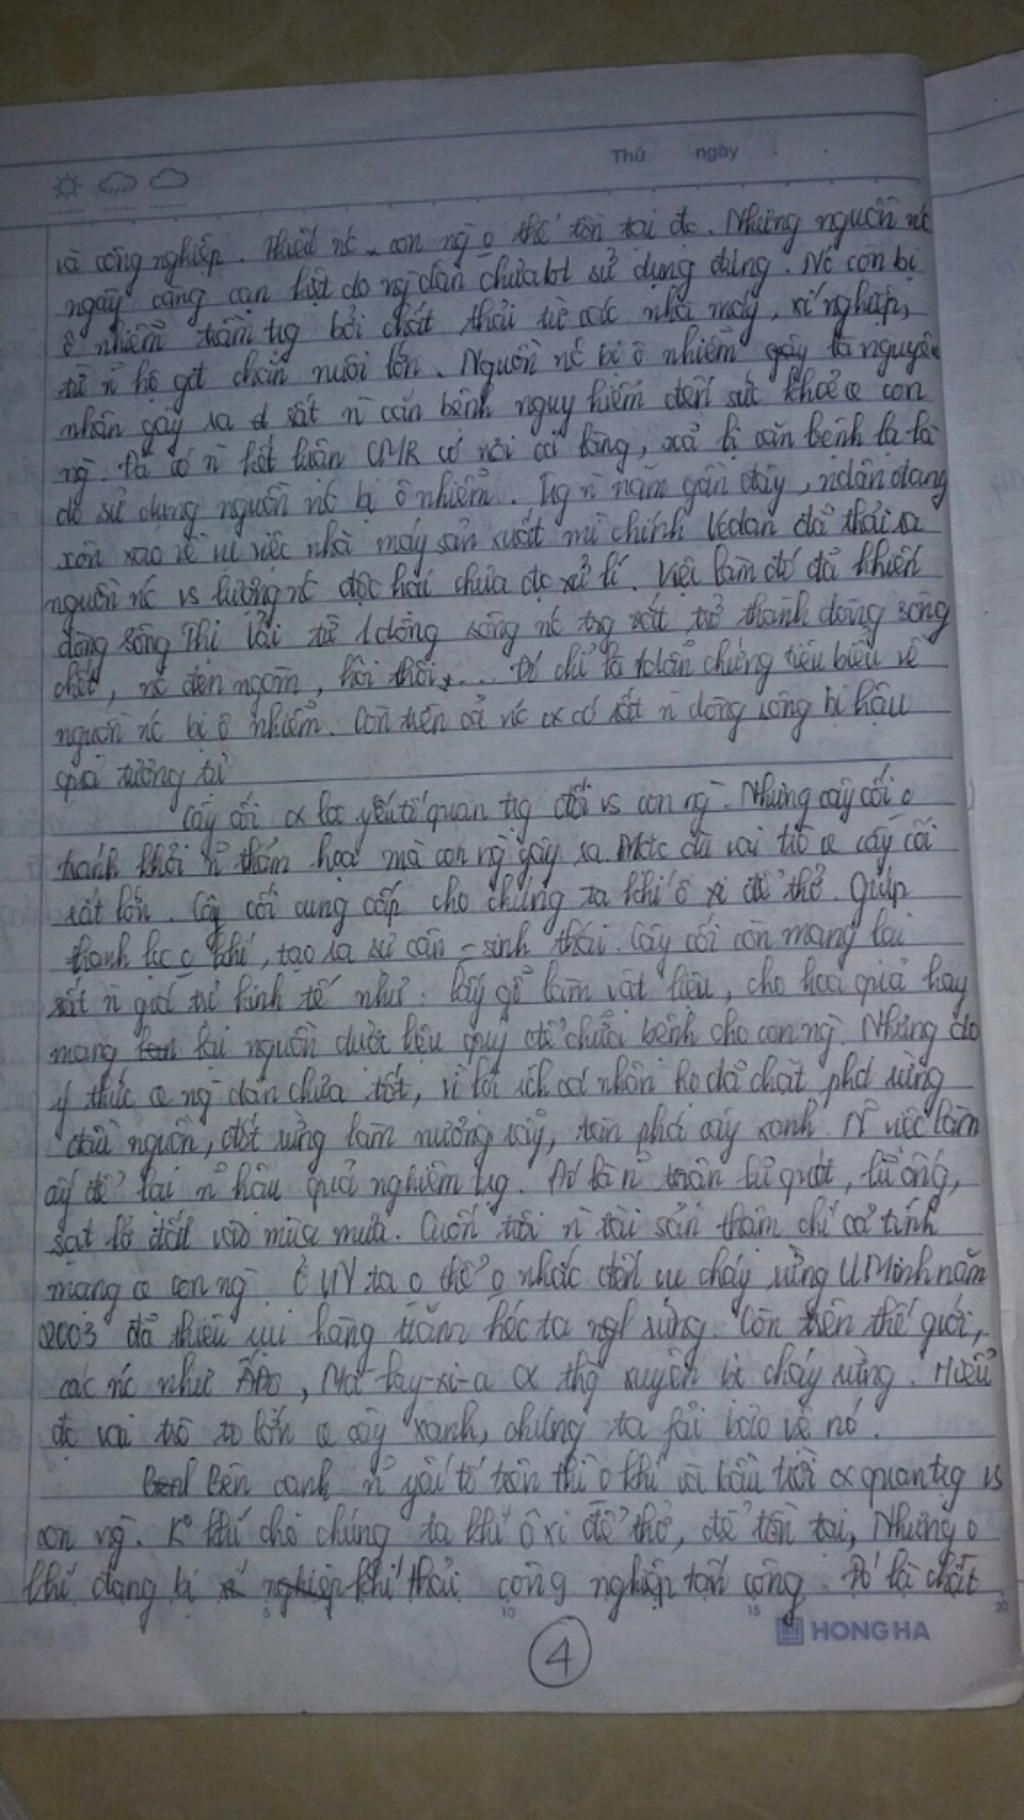 Thứ ngày
và công nghiệp. Thiếu nc, con ng o thể tồn tại đc. Nhưng nguồn nc
ngày càng cạn kiệt do ng dân chưa bt sử dụng đúng. Nc còn bị
ô nhiễm trầm trg bởi chất thải từ các nhà máy, xí nghiệp,
từ n hộ gđ chăn nuôi lớn. Nguồn nc bị ô nhiễm gây là nguyên
nhân gây ra rất n căn bệnh nguy hiểm đến sức khỏe con
ng. Đã có n kết luận CMR có nơi cả làng, xã bị căn bệnh lạ là
do sử dụng nguồn nc bị ô nhiễm. Trg n năm gần đây, ndân đang
xôn xao về vụ việc nhà máy sản xuất mì chính Vedan đã thải ra
nguồn nc vs lượng nc độc hại chưa đc xử lí. Việc làm đó đã khiến
dòng sông Thị Vải từ 1 dòng sông nc trg vắt trở thành dòng sông
chết, nc đen ngòm, hôi thối,... Đó chỉ là 1 dẫn chứng tiêu biểu về
nguồn nc bị ô nhiễm. Còn trên cả nc α có rất n dòng sông bị hậu
quả tương tự
Cây cối α là yếu tố quan trg đối vs con ng. Nhưng cây cối o
tránh khỏi n thảm họa mà con ng gây ra. Mặc dù vai trò cây cối
rất lớn. Cây cối cung cấp cho chúng ta khí ô xi để thở. Giúp
thanh lọc o khí, tạo ra sự cân = sinh thái. Cây cối còn mang lại
rất n giá trị kinh tế như: lấy gỗ làm vật liệu, cho hoa quả hay
mang lại nguồn dược liệu quý để chữa bệnh cho con ng. Nhưng do
ý thức ng dân chưa tốt, vì lợi ích cá nhân họ đã chặt phá rừng
đầu nguồn, đốt rừng làm nương rẫy, tàn phá cây xanh. N việc làm
ấy để lại n hậu quả nghiêm trg. Đó là n trận lũ quét, lũ ống,
sạt lở đất vào mùa mưa. Cuốn trôi n tài sản thậm chí cả tính
mạng con ng. Ở VN ta o thể o nhắc đến vụ cháy rừng U Minh năm
2003 đã thiêu rụi hàng trăm héc ta rừng. Còn trên thế giới,
các nc như Áo, Ma-lay-xi-a α thg xuyên bị cháy rừng. Hiểu
đc vai trò to lớn cây xanh, chúng ta fải bảo vệ nó.
Bên cạnh n yếu tố trên thì o khí và bầu trời α quan trg vs
con ng. K khí cho chúng ta khí ôxi để thở, để tồn tại, Nhưng o
khí đang bị khí thải công nghiệp tấn công. Đó là chất
5 10 15 20
HONG HA
4